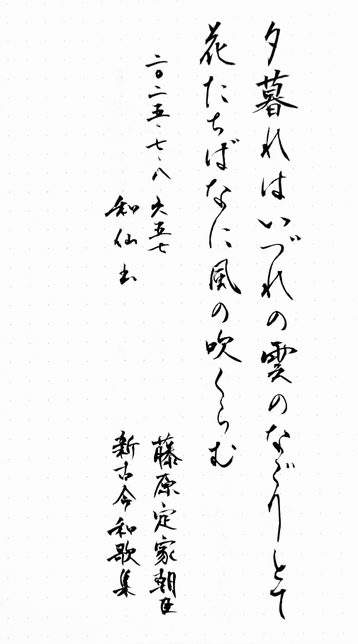 夕暮れはいづれの雲のなごりとて
花たちばなに風の吹くらむ
藤原定家朝臣
新古今和歌集
二〇二五・七・八 六五七
知仙書